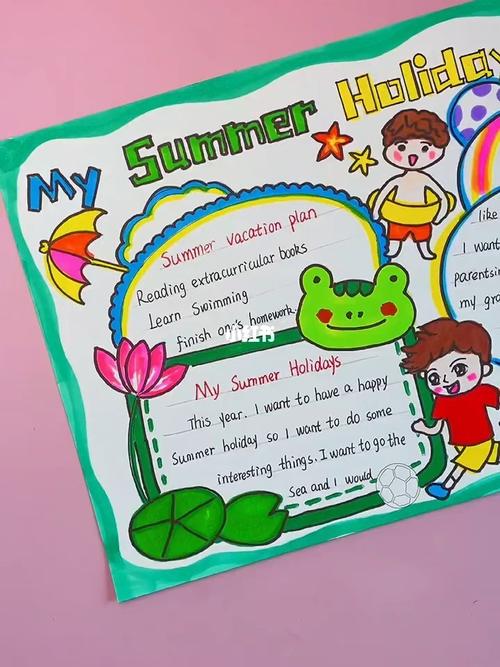 My Summer Holiday
Summer vacation plan
Reading extracurricular books
Learn Swimming
finish one's homework
小红书
My Summer Holidays
This year. I want to have a happy
Summer holiday so I want to do some
interesting things. I want to go the
Sea and I would
like
I want
parents
my gr